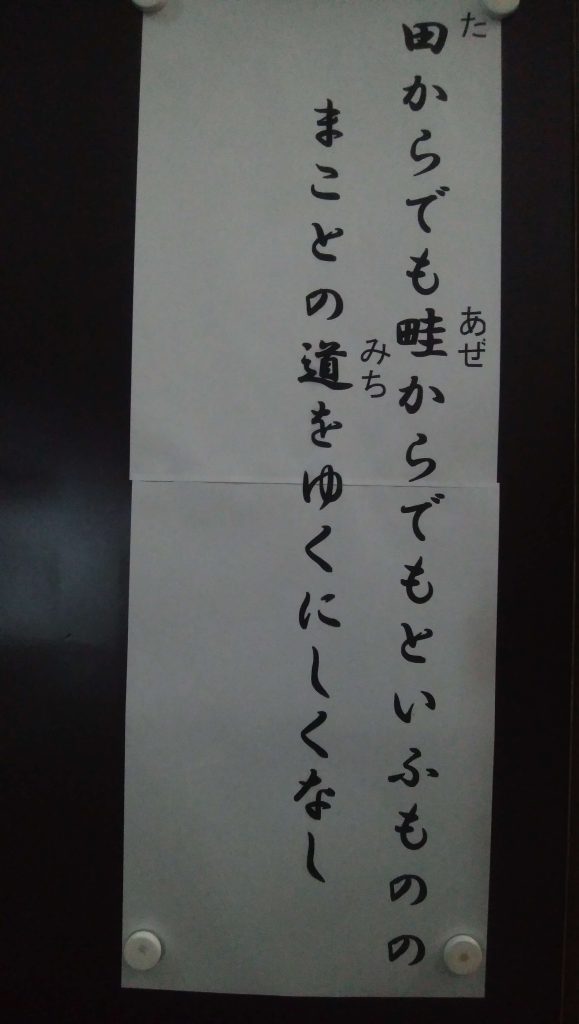 田からでも畦からでもといふものの
た
あぜ
まことの道をゆくにしくなし
みち